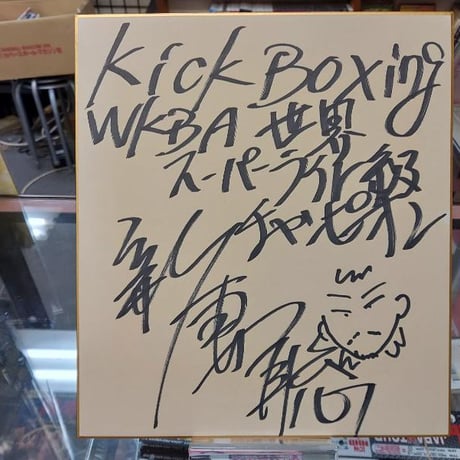 Kick Boxing
WKBA 世界
スーパーライト級
チャンピオン
新妻聡